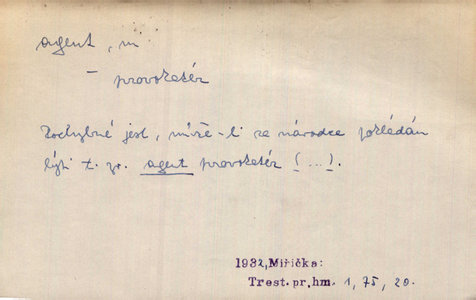 agent, m
– provokatér
Pochybné jest, může-li za návodce pokládán
býti t. zv. agent provokatér (...).
1932, Miřička:
Trest. pr. hm. 1, 75, 20.